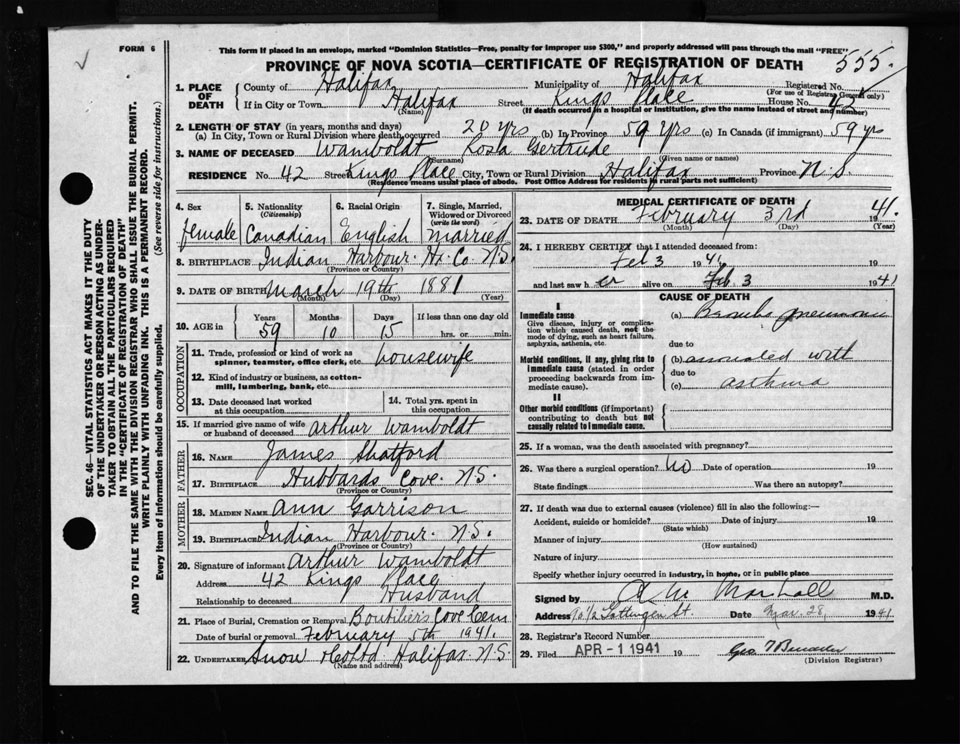 FORM 6
This form if placed in an envelope, marked "Dominion Statistics—Free, penalty for improper use $300," and properly addressed will pass through the mail "FREE"
PROVINCE OF NOVA SCOTIA—CERTIFICATE OF REGISTRATION OF DEATH
555.
1. PLACE OF DEATH
County of Halifax Municipality of Halifax Registered No.
(For use of Registrar General only)
If in City or Town Halifax Street Kings Place House No. 42
(Name) (If death occurred in a hospital or institution, give the name instead of street and number)
2. LENGTH OF STAY (in years, months and days)
(a) In City, Town or Rural Division where death occurred 20 yrs (b) In Province 59 yrs (c) In Canada (if immigrant) 59 yrs
3. NAME OF DECEASED Wamboldt Rosa Gertrude
(Surname) (Given name or names)
RESIDENCE No. 42 Street Kings Place City, Town or Rural Division Halifax Province N.S.
(Residence means usual place of abode. Post Office Address for residents in rural parts not sufficient)
4. Sex
female
5. Nationality (Citizenship)
Canadian
6. Racial Origin
English
7. Single, Married, Widowed or Divorced (write the word)
Married
8. BIRTHPLACE Indian Harbour. Hx. Co. N.S.
(Province or Country)
9. DATE OF BIRTH March 19th 1881
(Month) (Day) (Year)
10. AGE in Years Months Days If less than one day old
59 10 15 hrs. or min.
OCCUPATION
11. Trade, profession or kind of work as spinner, teamster, office clerk, etc. housewife
12. Kind of industry or business, as cotton-mill, lumbering, bank, etc.
13. Date deceased last worked at this occupation
14. Total yrs. spent in this occupation
15. If married give name of wife or husband of deceased Arthur Wamboldt
FATHER
16. NAME James Shatford
17. BIRTHPLACE Hubbards Cove. N.S.
(Province or Country)
MOTHER
18. MAIDEN NAME Ann Garrison
19. BIRTHPLACE Indian Harbour. N.S.
(Province or Country)
20. Signature of informant Arthur Wamboldt
Address 42 Kings Place
Relationship to deceased Husband
21. Place of Burial, Cremation or Removal Boutilier's Cove Cem
Date of burial or removal February 5th 1941.
22. UNDERTAKER Snow & Co Ltd. Halifax. N.S.
(Name and address)
MEDICAL CERTIFICATE OF DEATH
23. DATE OF DEATH February 3rd 1941.
(Month) (Day) (Year)
24. I HEREBY CERTIFY that I attended deceased from:
Feb 3 1941
and last saw her alive on Feb 3 1941
CAUSE OF DEATH
I
Immediate cause
Give disease, injury or complication which caused death, not the mode of dying, such as heart failure, asphyxia, asthenia, etc.
(a) Broncho pneumonia
due to
Morbid conditions, if any, giving rise to immediate cause (stated in order proceeding backwards from immediate cause).
(b) associated with
due to
(c) asthma
II
Other morbid conditions (if important) contributing to death but not causally related to immediate cause.
25. If a woman, was the death associated with pregnancy?
26. Was there a surgical operation? No Date of operation 19
State findings Was there an autopsy?
27. If death was due to external causes (violence) fill in also the following:—
Accident, suicide or homicide? Date of injury 19
(State which)
Manner of injury
(How sustained)
Nature of injury
Specify whether injury occurred in industry, in home, or in public place
Signed by Marshall M.D.
Address Gottingen St. Date Mar. 28, 1941
28. Registrar's Record Number
29. Filed APR -1 1941 19
(Division Registrar)
SEC. 46—VITAL STATISTICS ACT MAKES IT THE DUTY
OF THE UNDERTAKER OR PERSON ACTING AS UNDER-
TAKER TO OBTAIN ALL THE PARTICULARS REQUIRED
IN THE "CERTIFICATE OF REGISTRATION OF DEATH"
AND TO FILE THE SAME WITH THE DIVISION REGISTRAR WHO SHALL ISSUE THE BURIAL PERMIT.
WRITE PLAINLY WITH UNFADING INK. THIS IS A PERMANENT RECORD.
Every item of information should be carefully supplied. (See reverse side for instructions.)